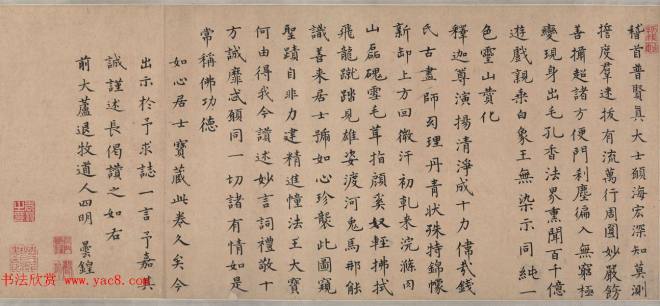 稽首普賢真大士願海宏深知莫測
誓度羣迷拔有流萬行周圓妙嚴飭
善攝超諸方便門剎塵徧入無窮極
變現身出毛孔香法界熏聞百千億
遊戲親乘白象王無染示同純一
色靈山贊化
釋迦尊演揚清淨成十力
氏古畫師 理丹青狀殊特錦幪
新卸上方回 汗初乾来浣滌肉
山磊磈雪毛茸指顧奚奴輕拂拭
飛龍蹴踏見雄姿渡河兔馬那能
識善来居士號如心珍襲此圖窺
聖蹟自非力建精進幢法王大寶
何由得我今讚述妙言詞禮敬十
方誠靡忒願同一切諸有情如是
常稱佛功德
如心居士寶藏此卷久矣今
出示於予求誌一言予嘉其
誠謹述長偈讚之如右
前大蘆退牧道人四明曇鍠
书法欣赏
http://www.yac8.com